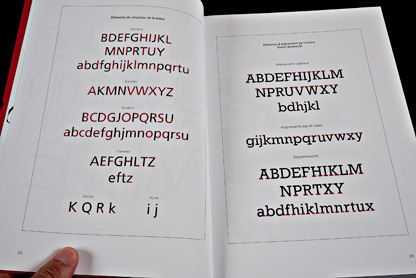 Éléments de structure de la lettre
BDEFGHIJKL
MNPRTUY
abdfghijklmnpqrtu
AKMNVWXYZ
BCDGJOPQRSU
abcdefghjmnopqrsu
AEFGHLTZ
eftz
K Q R k
i j
Éléments d'alignement de la lettre
ABDEFHIJKLM
NPRUVWXY
bdhjkl
Alignements capitales
gijkmnpqruvwxy
Alignements bas de casse
ABDEFHIKLM
NPRTXY
abdfhiklmnrtux